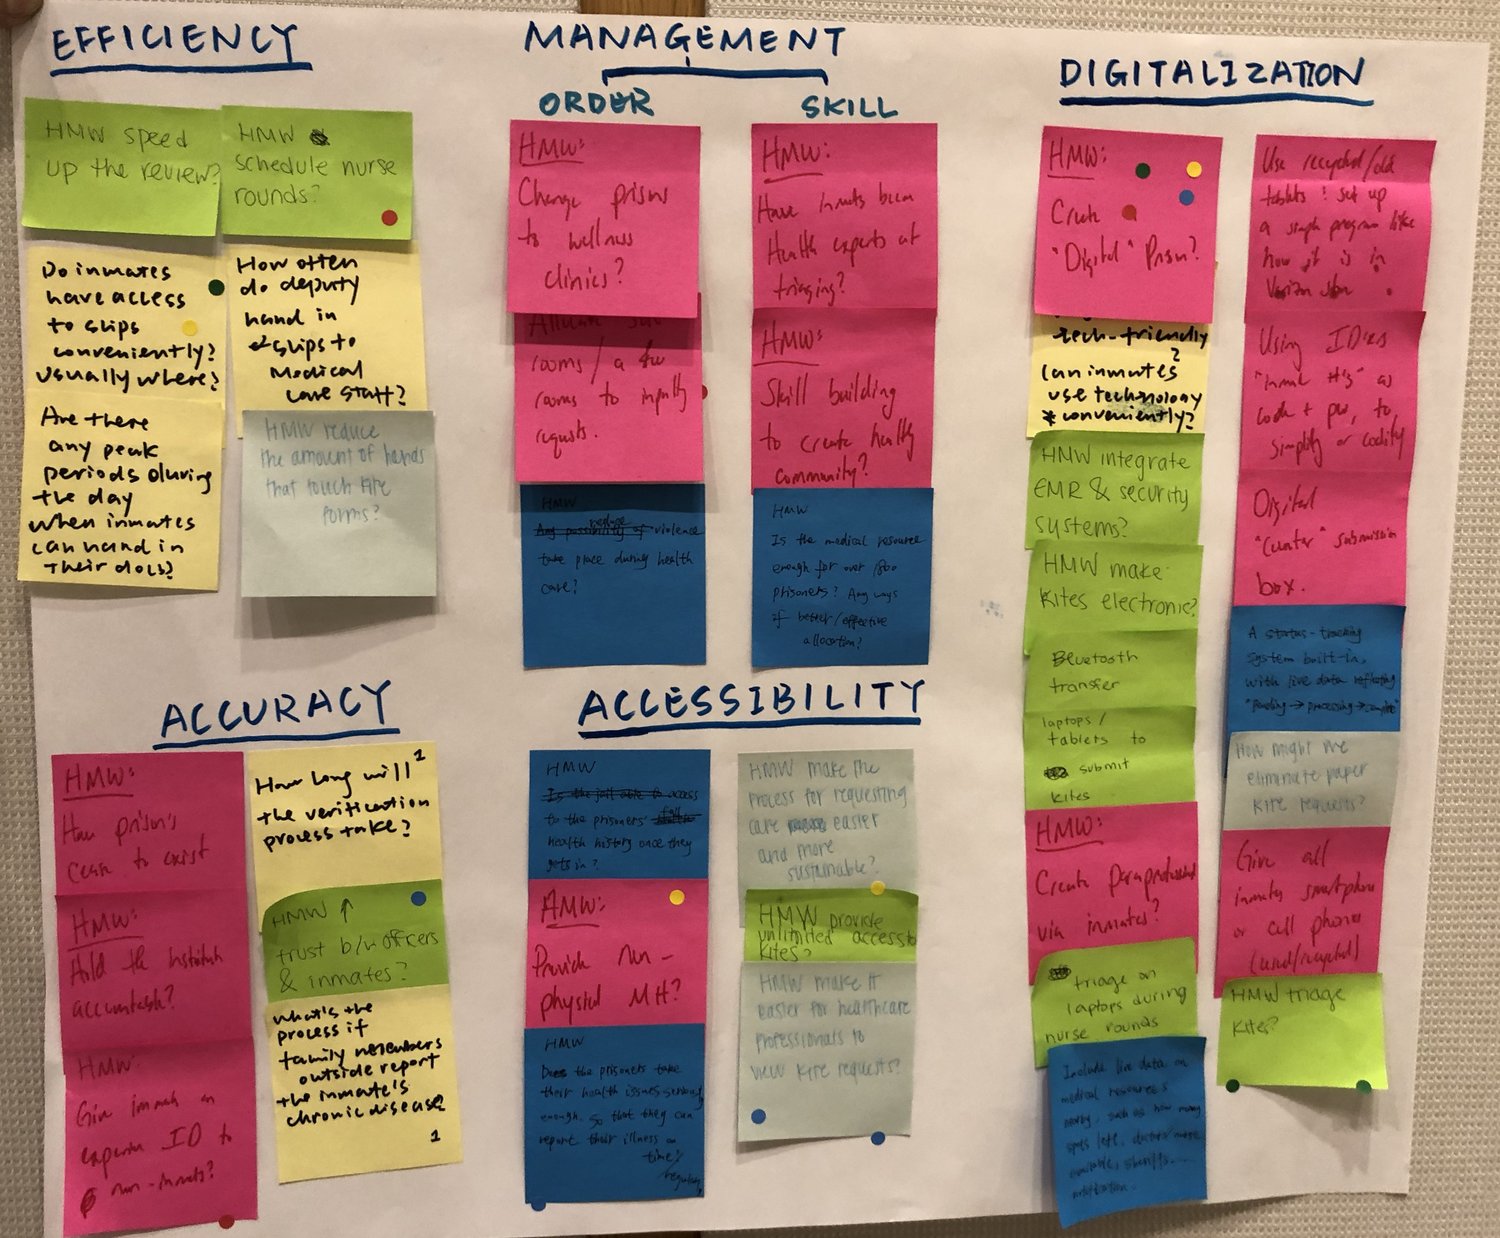 EFFICIENCY
HMW speed
up the review?
HMW
schedule nurse
rounds?
Do inmates
have access
to slips
conveniently?
usually where?
How often
do deputy
hand in
slips to
Medical
care staff?
Are there
any peak
periods during
the day
when inmates
can hand in
their docs?
HMW reduce
the amount of hands
that touch kite
forms?
MANAGEMENT
ORDER
HMW:
Change prisons
to wellness
clinics?
rooms / a few
rooms to
requests.
HMW
Any possibility of reduce violence
take place during health
care?
SKILL
HMW:
Have inmates become
Health experts at
triaging?
HMW:
Skill building
to create healthy
community?
HMW
Is the medical resource
enough for over 1800
prisoners? Any ways
if better/effective
allocation?
DIGITALIZATION
HMW:
Create
"Digital" Prison?
tech-friendly
?
Can inmates
use technology
*conveniently?
HMW integrate
EMR & security
systems?
HMW make
kites electronic?
Bluetooth
transfer
laptops/
tablets to
submit
kites
HMW:
Create paraprofessional
via inmates?
triage on
laptops during
nurse rounds
Include live data on
medical resources
nearby, such as how many
spots left, doctors/nurse
available, sheriffs.....
notification.
Use recycled/old
tablets; set up
a simple program like
how it is in
Verizon store
Using ID's as
"inmate #'s" as
code + pw, to
simplify or codify
Digital
submission
box.
A status-tracking
system built-in,
with live data reflecting
"Pending → processing → complete"
How might we
eliminate paper
kite requests?
Give all
inmates smartphone
or cell phones
(used/recycled)
HMW triage
kites?
ACCURACY
HMW:
Have prison's
cease to exist
HMW:
Hold the institution
accountable?
HMW:
Give inmates an
ID to
non-inmates?
How long will
the verification
process take?
HMW ↑
trust b/w officers
& inmates?
What's the
process if
family members
outside report
the inmate's
chronic disease?
1
ACCESSIBILITY
HMW
Is the jail able to access
to the prisoners' full
health history once they
gets in?
HMW:
Provide non-
physical MH?
HMW
Does the prisoners take
their health issues seriously
enough. So that they can
report their illness on
time/
regularly
HMW make the
process for requesting
care easier
and more
sustainable?
HMW provide
unlimited access to
kites?
HMW make it
easier for healthcare
professionals to
view kite requests?